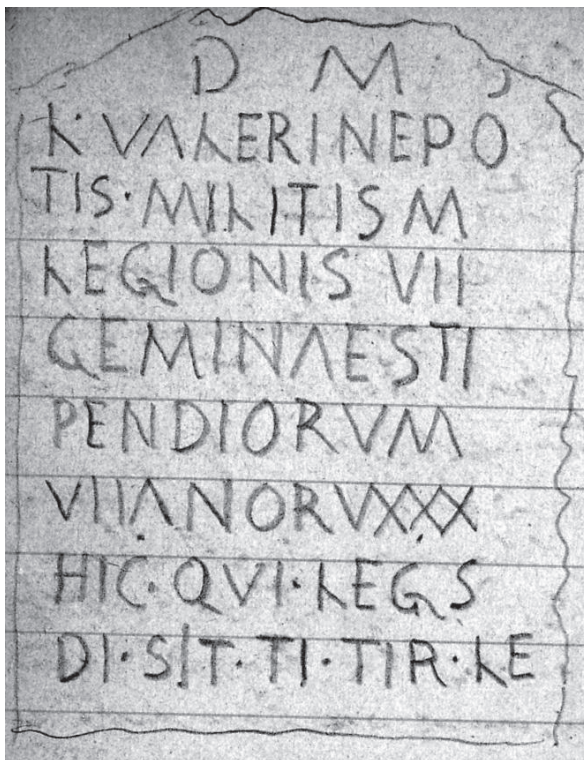 D M
L· VALERINEPO
TIS·MILITISM
LEGIONIS VII
GEMINAESTI
PENDIORVM
VIIANORVXXX
HIC·QVI·LEGS
DI·SIT·TI·TIR·LE